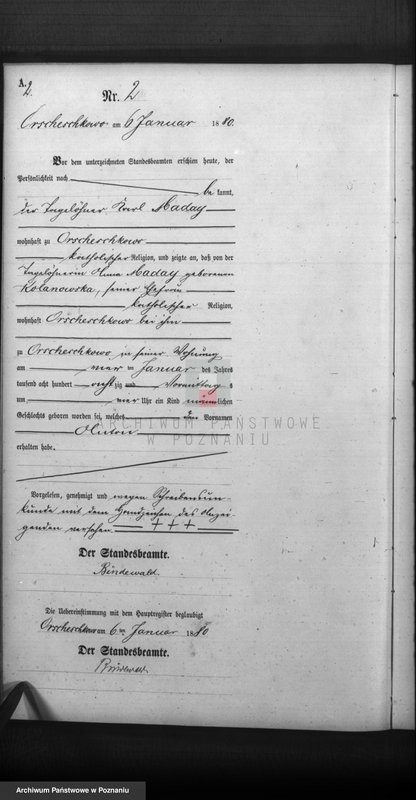 A.
2.
Nr. 2
Orscheschkowo am 6 Januar 1880.
Vor dem unterzeichneten Standesbeamten erschien heute, der
Persönlichkeit nach
bekannt,
der Tagelöhner Karl Maday
wohnhaft zu Orscheschkowo
katholischer Religion, und zeigte an, daß von der
Tagelöhnerin Anna Maday geborenen
Kolanowska, seiner Ehefrau
katholischer Religion,
wohnhaft Orscheschkowo bei ihm
zu Orscheschkowo in seiner Wohnung
am vier ten Januar des Jahres
tausend acht hundert achtzig und Vormittag s
um vier Uhr ein Kind männlichen
Geschlechts geboren worden sei, welches den Vornamen
Anton
erhalten habe.
Vorgelesen, genehmigt und wegen Schreibensun-
kunde mit dem Handzeichen des Anzei-
genden versehen. + + +
Der Standesbeamte.
Bindewald.
Die Uebereinstimmung mit dem Hauptregister beglaubigt
Orscheschkowo am 6ten Januar 1880
Der Standesbeamte.
Bindewald
ARCHIWUM PAŃSTWOWE
W POZNANIU
Archiwum Państwowe w Poznaniu